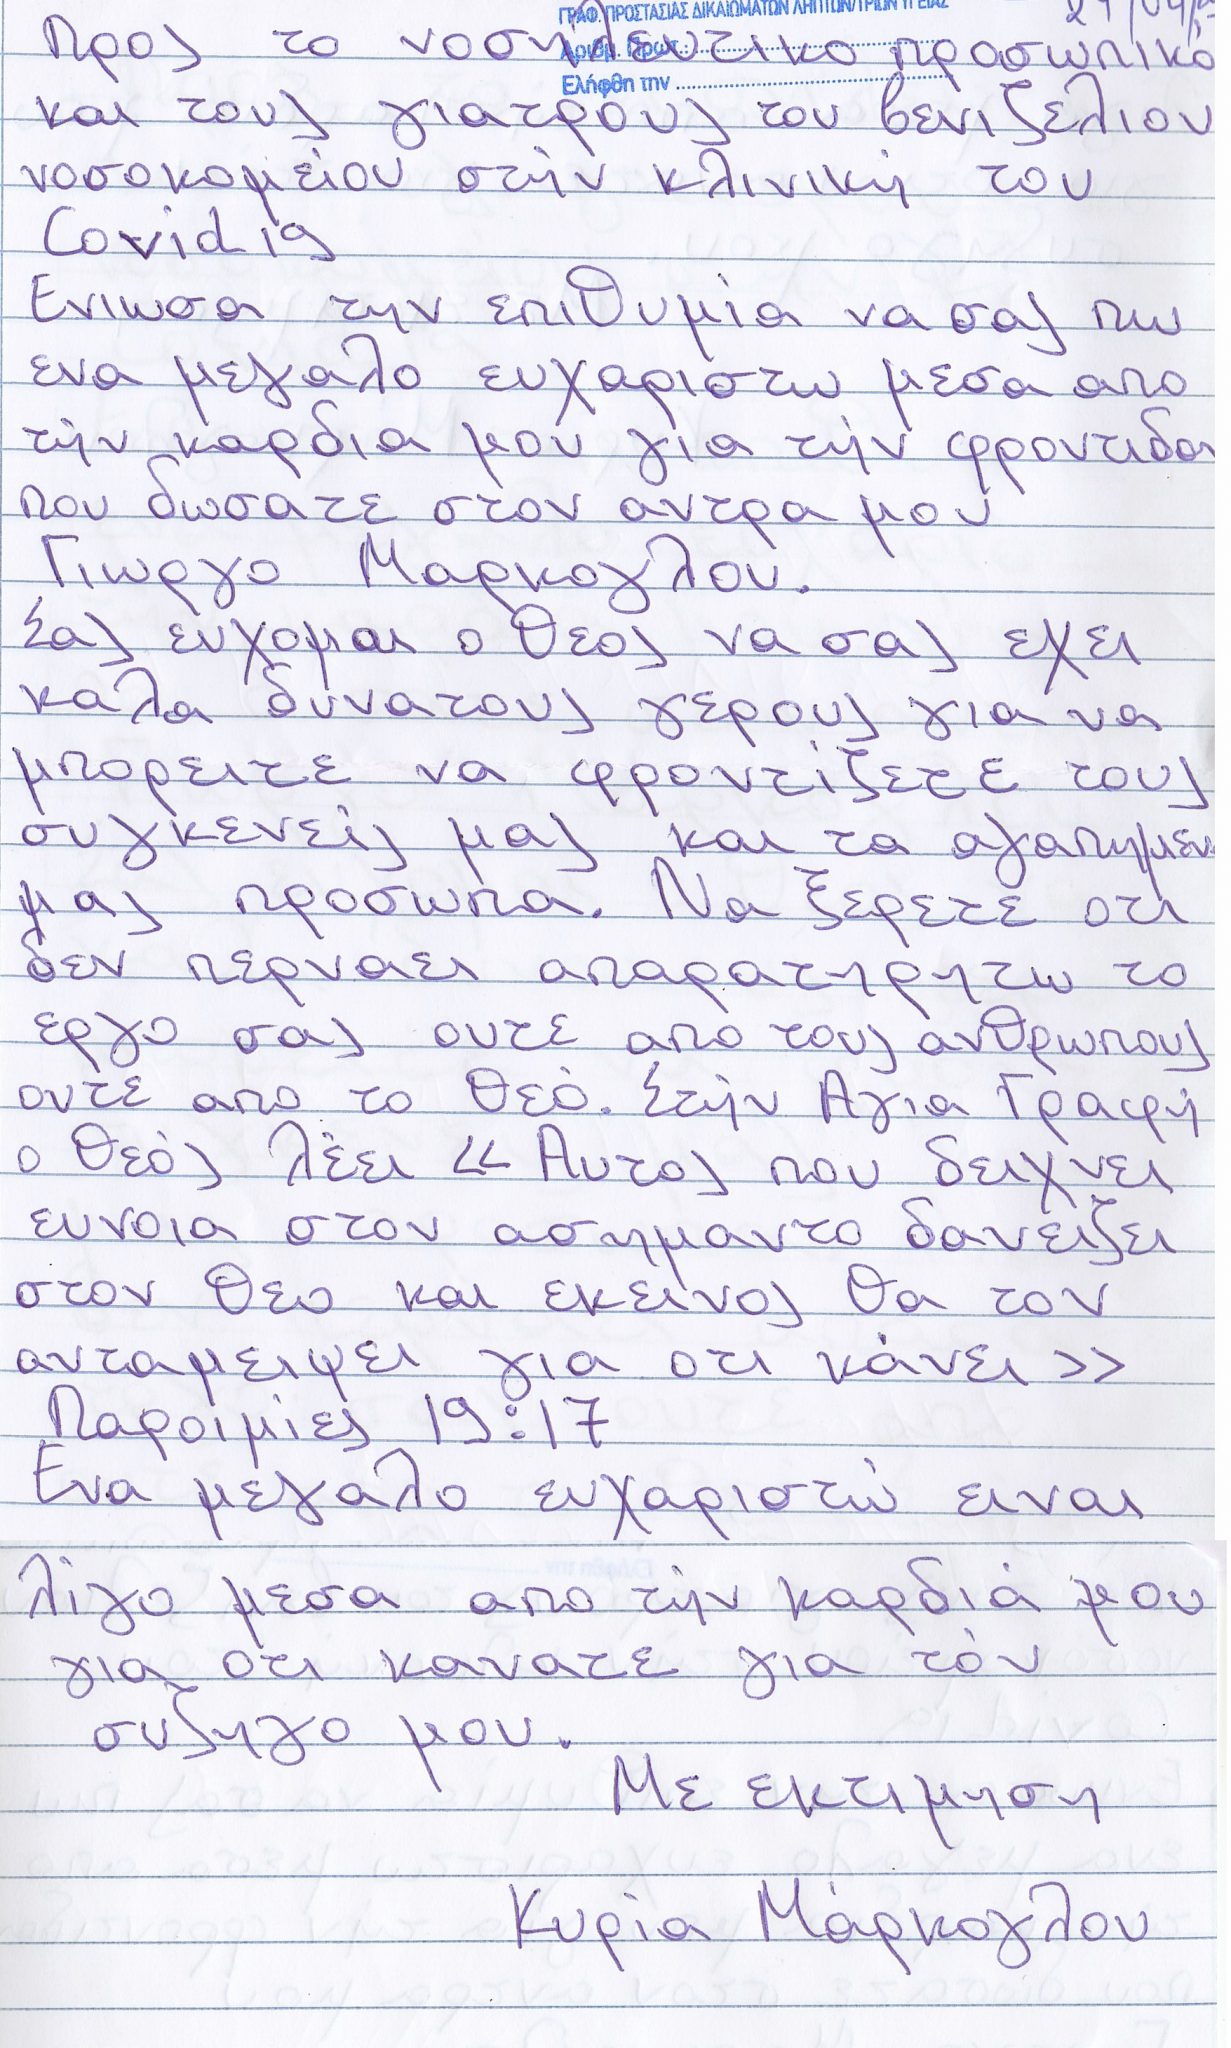 ΓΡΑΦ. ΠΡΟΣΤΑΣΙΑΣ ΔΙΚΑΙΩΜΑΤΩΝ ΛΗΠΤΩΝ/ΤΡΙΩΝ ΥΓΕΙΑΣ
Αριθμ. Πρωτ.
Ελήφθη την
Προς το νοσηλευτικο προσωπικό
και τους γιατρους του βενιζελιου
νοσοκομείου στήν κλινική του
Covid 19
Ενιωσα την επιθυμία να σας πω
ενα μεγαλο ευχαριστω μεσα απο
τήν καρδια μου για τήν φροντιδα
που δωσατε στον αντρα μου
Γιωργο Μαρκογλου.
Σας ευχομαι ο θεος να σας εχει
καλα δυνατους γερους για να
μπορειτε να φροντίζετε τους
συγκενείς μας και τα αγαπημεν
μας προσωπα. Να ξερετε οτι
δεν περναει απαρατηρητω το
εργο σας ουτε απο τους ανθρωπους
ουτε απο το θεό. Στήν Αγια Γραφή
ο θεός λέει << Αυτος που δειχνει
ευνοια στον ασημαντο δανειζει
στον θεο και εκείνος θα τον
ανταμειψει για οτι κάνει >>
Παροιμίες 19:17
Ενα μεγαλο ευχαριστώ ειναι
λίγο μεσα απο τήν καρδιά μου
για οτι κανατε για τόν
συζηγο μου.
Με εκτιμηση
Κυρία Μάρκογλου